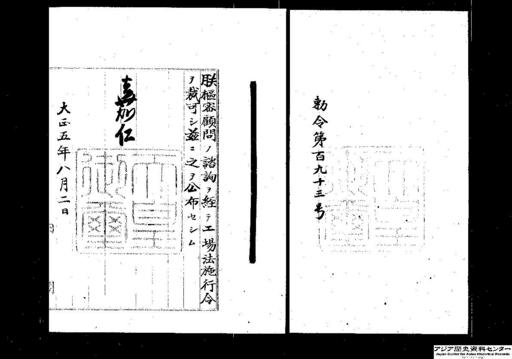 勅令第百九十三号
朕枢密顧問ノ諮詢ヲ経テ工場法施行令
ヲ裁可シ茲ニ之ヲ公布セシム
嘉仁
天皇
御璽
大正五年八月二日
アジア歴史資料センター
Japan Center for Asian Historical Records